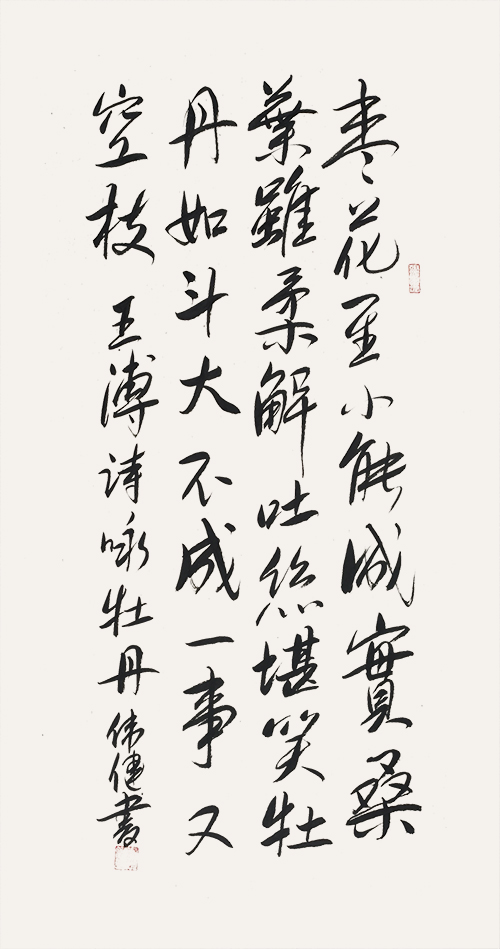 枣花至小能成實桑
葉雖柔解吐絲堪笑牡
丹如斗大不成一事又
空枝 王溥诗咏牡丹 伟健書